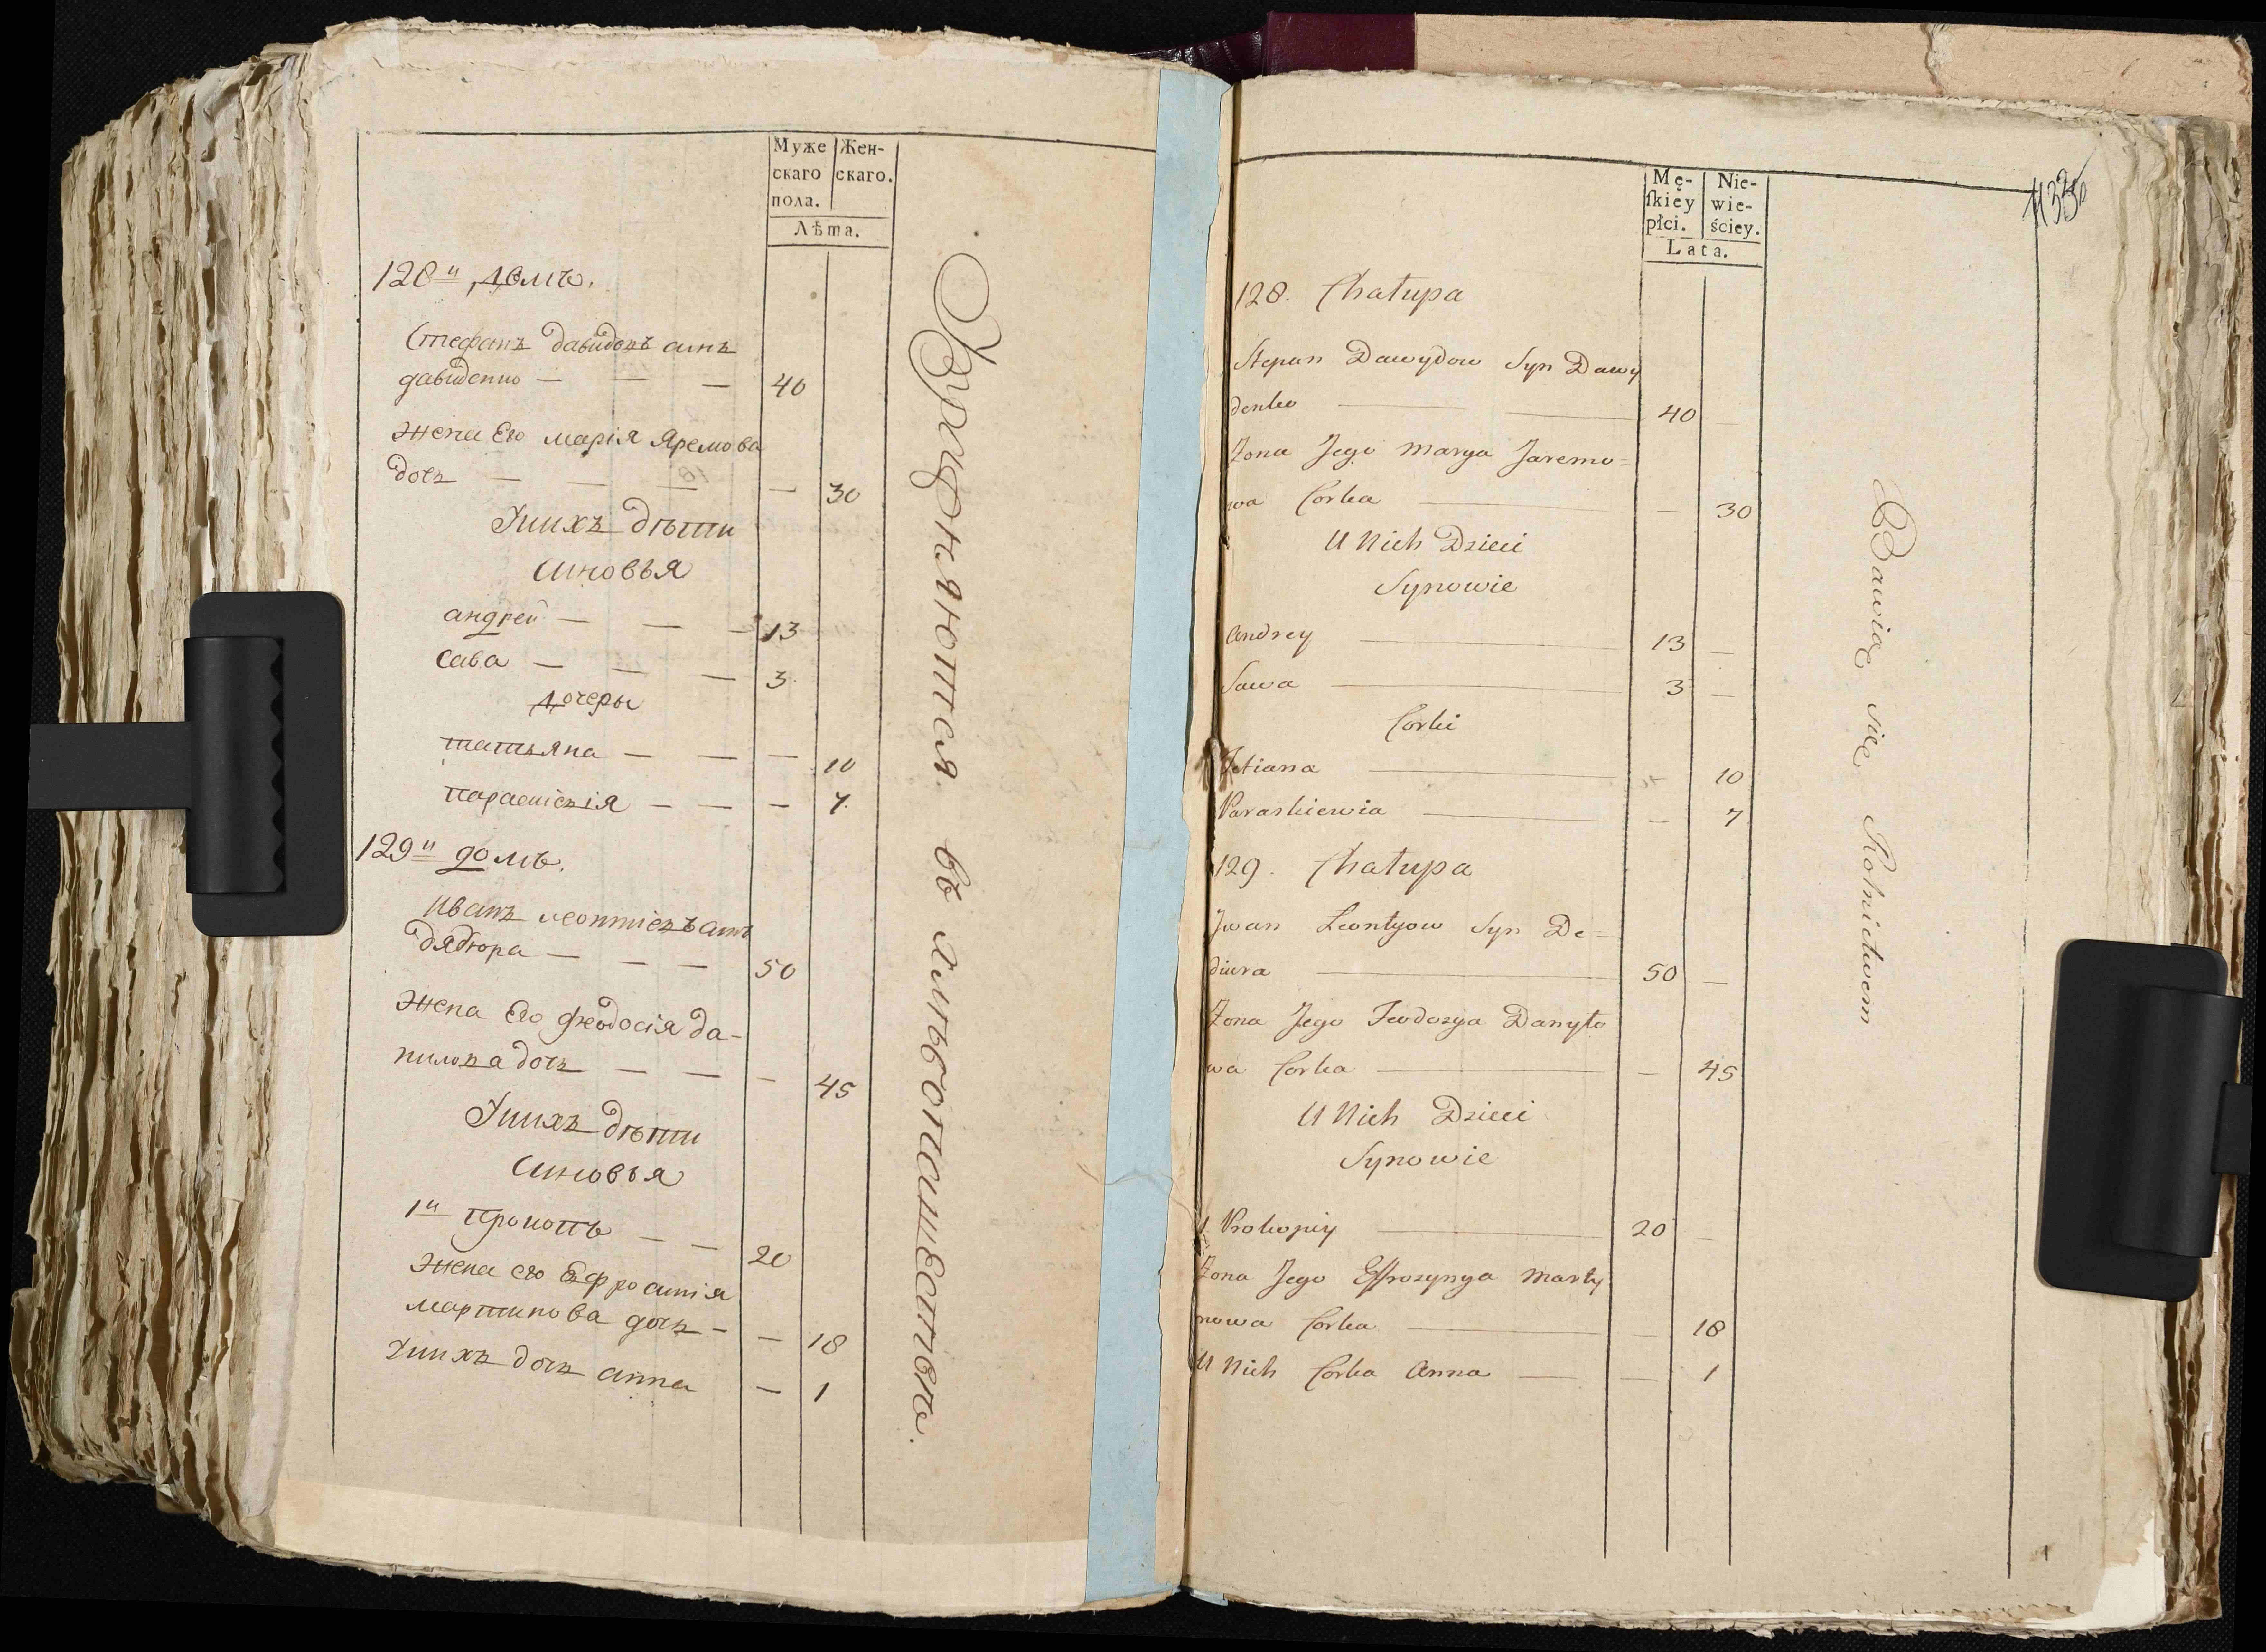 Муже
скаго
пола.
Жен-
скаго.
Лѣта.
128й домъ.
Стефанъ давидовъ синъ
давиденко — — — 40
жена Его марія Яремова
дочь — — — — 30
У нихъ дѣти
синовья
андрей — — — 13
сава — — — 3.
дочеры
татьяна — — — 10
параскевія — — — 7.
129й домъ.
Иванъ леонтіевъ синъ
дядюра — — — 50
жена Его феодосія да-
нилова дочь — — — 45
У нихъ дѣти
синовья
1й прокопъ — — 20
жена его Ефросинія
мартинова дочь — — 18
У нихъ дочь анна — 1
Упражняются въ хлѣбопашествѣ.
Mę-
ſkiey
płci.
Nie-
wie-
ściey.
Lata.
128. Chałupa
Stepan Dawydow Syn Dawy
denko — — 40 —
Zona Jego Marya Jaremo=
wa Corka — — 30
U Nich Dzieci
Synowie
Andrey — 13 —
Sawa — 3 —
Corki
Tetiana — — 10
Paraskiewia — — 7
129. Chałupa
Jwan Leontyow Syn De=
diura — 50 —
Zona Jego Teodozya Danyło
wa Corka — — 45
U Nich Dzieci
Synowie
1 Prokopiy — 20 —
Zona Jego Effrozynya Marty
nowa Corka — — 18
U Nich Corka Anna — — 1
Bawię się Rolnictwem